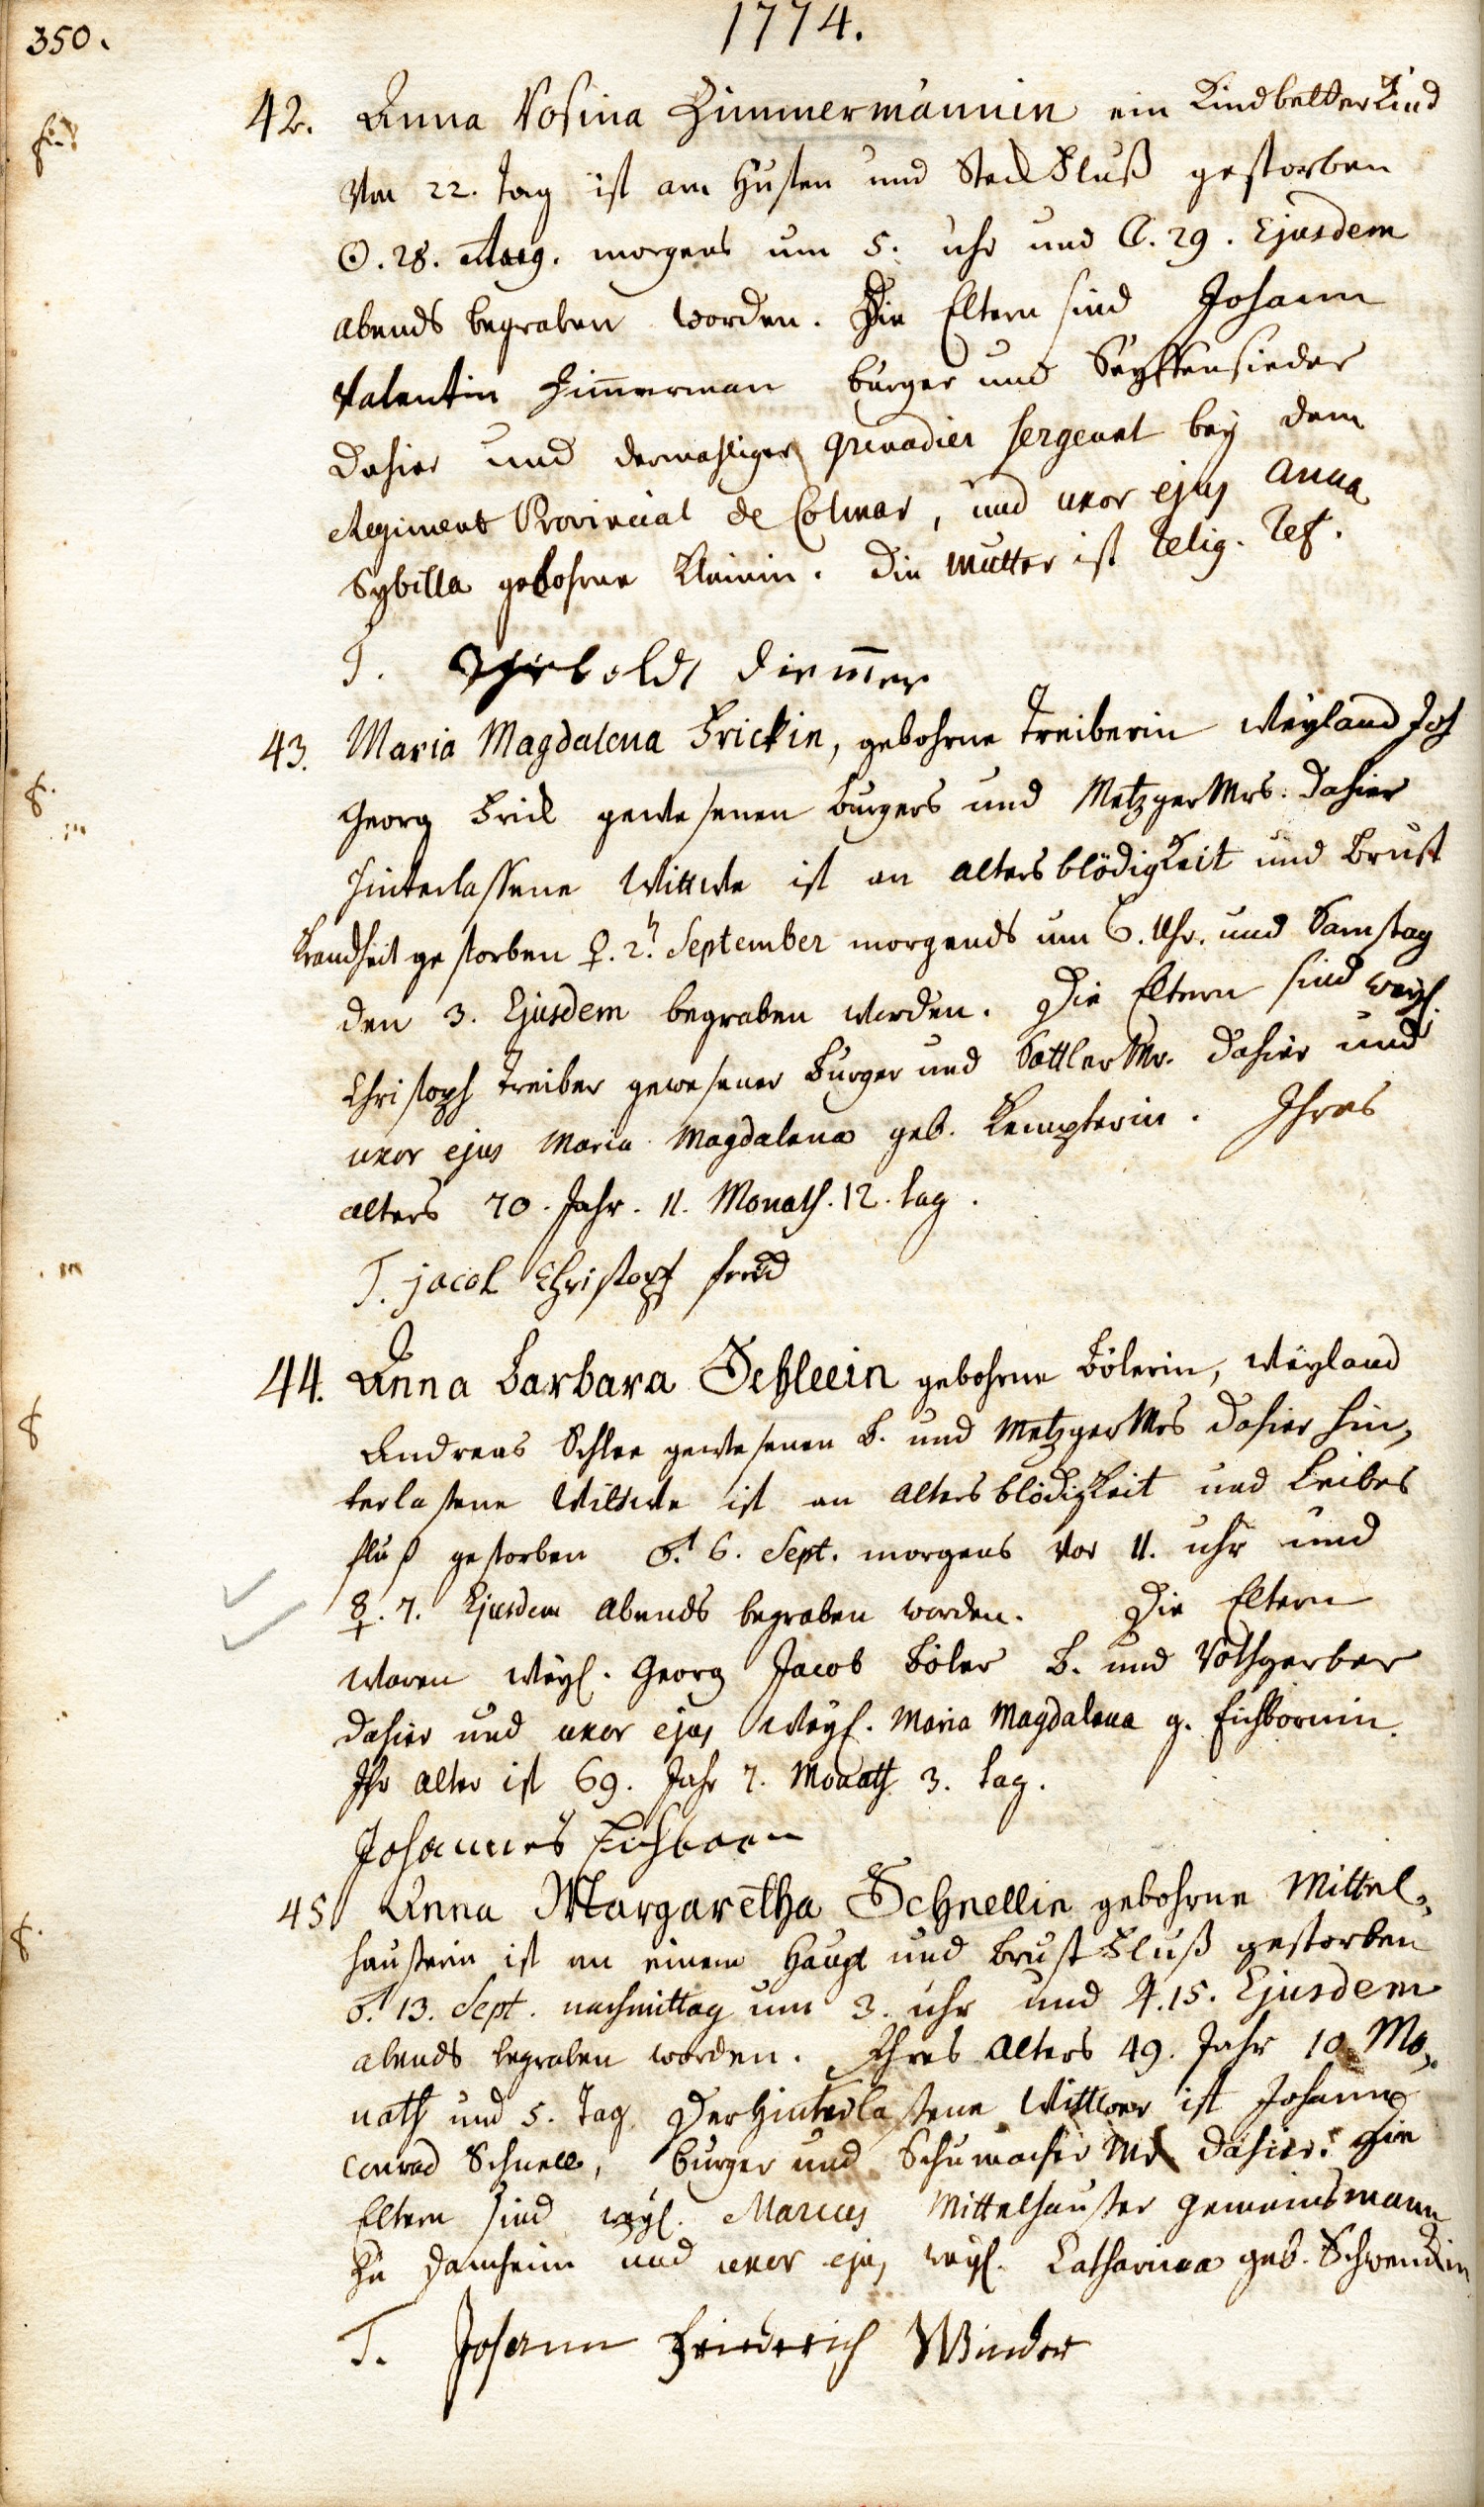 350.
1774.
42. Anna Rosina Zimmermännin ein Kindbetter Kind
Von 22. Tag ist am Husten und Steck Fluß gestorben
☉. 28. Aug. morgens um 5. uhr und ☾. 29. Ejusdem
abends begraben worden. Die Eltern sind Johann
Valentin Zim̄erman burger und Seyffensieder
dahier und dermahliger grenadier sergeant bey dem
Regiment Provincial de Colmar, und uxor ejus Anna
Sybilla gebohrne Kleinin. Die Mutter ist Relig. Ref.
T. Theboldt Diem̄er
43. Maria Magdalena Frickin, gebohrne Treiberin Weyland Joh
Georg Frick gewesenen burgers und Metzger Mrs. dahier
hinterlassene Wittwe ist an alters blödigkeit und Brust
Krandheit gestorben ♀. 2. September morgends um 6. Uhr. und Samstag
den 3. Ejusdem begraben worden. Die Eltern sind weyl.
Christoph Treiber gewesener Burger und Sattler Mr. dahier und
uxor ejus Maria Magdalena geb. Kempferin. Ihres
alters 70. Jahr. 11. Monath. 12. tag.
T. jacob Christoph
44. Anna Barbara Schleein gebohrne Bölerin, Weyland
Andreas Schlee gewesenen B. und Metzger Mrs dahier hin,
terlaßene Wittwe ist an alters blödigkeit und Leibes
fluß gestorben ♂. 6. Sept. morgens vor 11. uhr und
☿. 7. Ejusdem abends begraben worden. Die Eltern
waren Weyl. Georg Jacob Böler B. und Rothgerber
dahier und uxor ejus Weyl. Maria Magdalena g. Eichbornin.
Ihr alter ist 69. Jahr 7. Monath 3. tag.
Johannes Eichborn
45 Anna Margaretha Schnellin gebohrne Mittel,
haußerin ist an einem Haupt und Brust Fluß gestorben
♂. 13. Sept. nachmittag um 3. uhr und ♃. 15. Ejusdem
abends begraben worden. Ihres alters 49. Jahr 10. Mo,
nath und 5. Tag Der Hinterlaßene Wittwer ist Johann
Conrad Schnell, burger und Schumacher Mr dahier. Die
Eltern sind weyl. Marcus Mittelhaußer Gemeinsmann
zu Damheim und uxor ejus weyl. Catharina geb. Schwendin
T. Johann Friederich Winder